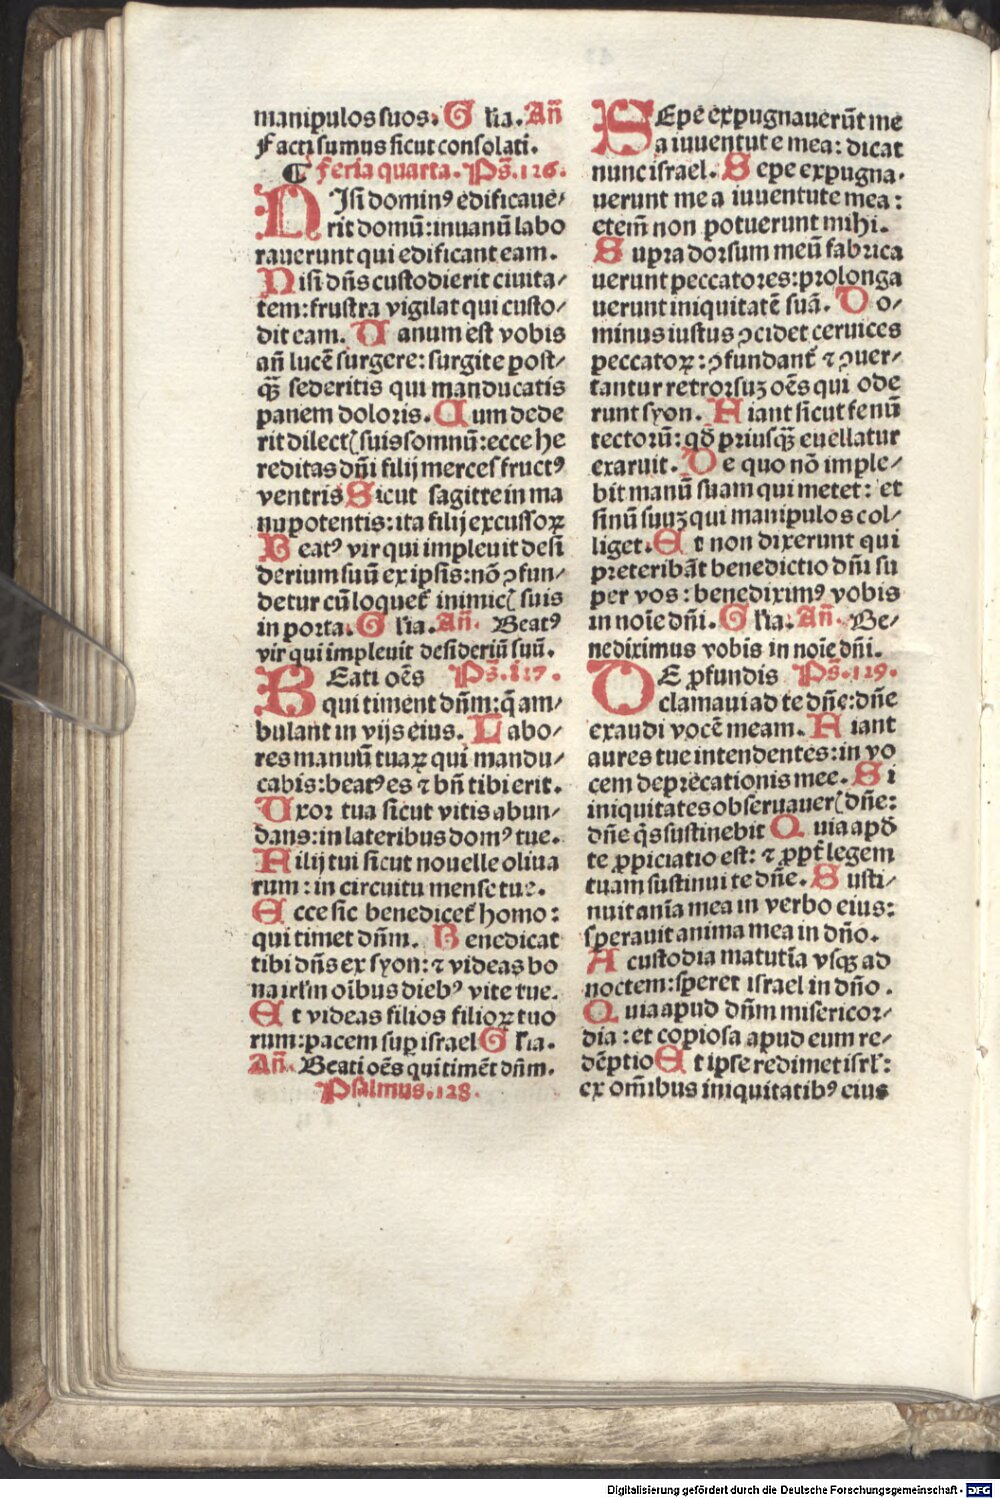 manipulos suos. G lia. Añ
Facti sumus sicut consolati.
¶ feria quarta. Ps̃. 126.
NIsi dominꝰ edificaue⸗
rit domũ: inuanũ labo
rauerunt qui edificant eam.
Nisi dñs custodierit ciuita⸗
tem: frustra vigilat qui custo⸗
dit eam. Uanum est vobis
añ lucẽ surgere: surgite post⸗
q̃ꝫ sederitis qui manducatis
panem doloris. Cum dede
rit dilectꝭ suis somnũ: ecce he
reditas dñi filij merces fructꝰ
ventris Sicut sagitte in ma
nu potentis: ita filij excussoꝝ
Beatꝰ vir qui impleuit desi
derium suũ ex ipsis: nõ ꝯfun⸗
detur cũ loquet̃ inimicꝭ suis
in porta. G lia. Añ. Beatꝰ
vir qui impleuit desideriũ suũ.
BEati oẽs Ps̃. 127.
qui timent dñm: q̃ am⸗
bulant in vijs eius. Labo⸗
res manuũ tuaꝝ qui mandu⸗
cabis: beatꝰ es ⁊ bñ tibi erit.
Uxor tua sicut vitis abun⸗
dans: in lateribus domꝰ tue.
Filij tui sicut nouelle oliua
rum: in circuitu mense tue.
Ecce sic benedicet̃ homo:
qui timet dñm. Benedicat
tibi dñs ex syon: ⁊ videas bo
na irl̃m oĩbus diebꝰ vite tue.
Et videas filios filioꝝ tuo
rum: pacem suꝑ israel G lia.
Añ. Beati oẽs qui timẽt dñm.
Psalmus. 128.
SEpe expugnauerũt me
a iuuentute mea: dicat
nunc israel. Sepe expugna⸗
uerunt me a iuuentute mea:
etem̃ non potuerunt mihi.
Supra dorsum meũ fabrica
uerunt peccatores: prolonga
uerunt iniquitatẽ suã. Do⸗
minus iustus ꝯcidet ceruices
peccatoꝝ: ꝯfundant̃ ⁊ ꝯuer⸗
tantur retrorsuꝫ oẽs qui ode
runt syon. Fiant sicut fenũ
tectorũ: qđ priusq̃ꝫ euellatur
exaruit. De quo nõ imple⸗
bit manũ suam qui metet: et
sinũ suuꝫ qui manipulos col⸗
liget. Et non dixerunt qui
preteribãt benedictio dñi su
per vos: benediximꝰ vobis
in noĩe dñi. G lia. Añ. Be⸗
nediximus vobis in noĩe dñi.
DE ꝓfundis Ps̃. 129.
clamaui ad te dñe: dñe
exaudi vocẽ meam. Fiant
aures tue intendentes: in vo
cem deprecationis mee. Si
iniquitates obseruauerꝭ dñe:
dñe q̃s sustinebit Quia apđ
te ꝓpiciatio est: ⁊ ꝓpt̃ legem
tuam sustinui te dñe. Susti⸗
nuit anĩa mea in verbo eius:
sperauit anima mea in dño.
A custodia matutĩa vsqꝫ ad
noctem: speret israel in dño.
Quia apud dñm misericor⸗
dia: et copiosa apud eum re⸗
dẽptio Et ipse redimet isrl̃:
ex om̃ibus iniquitatibꝰ eius
Digitalisierung gefördert durch die Deutsche Forschungsgemeinschaft - DFG